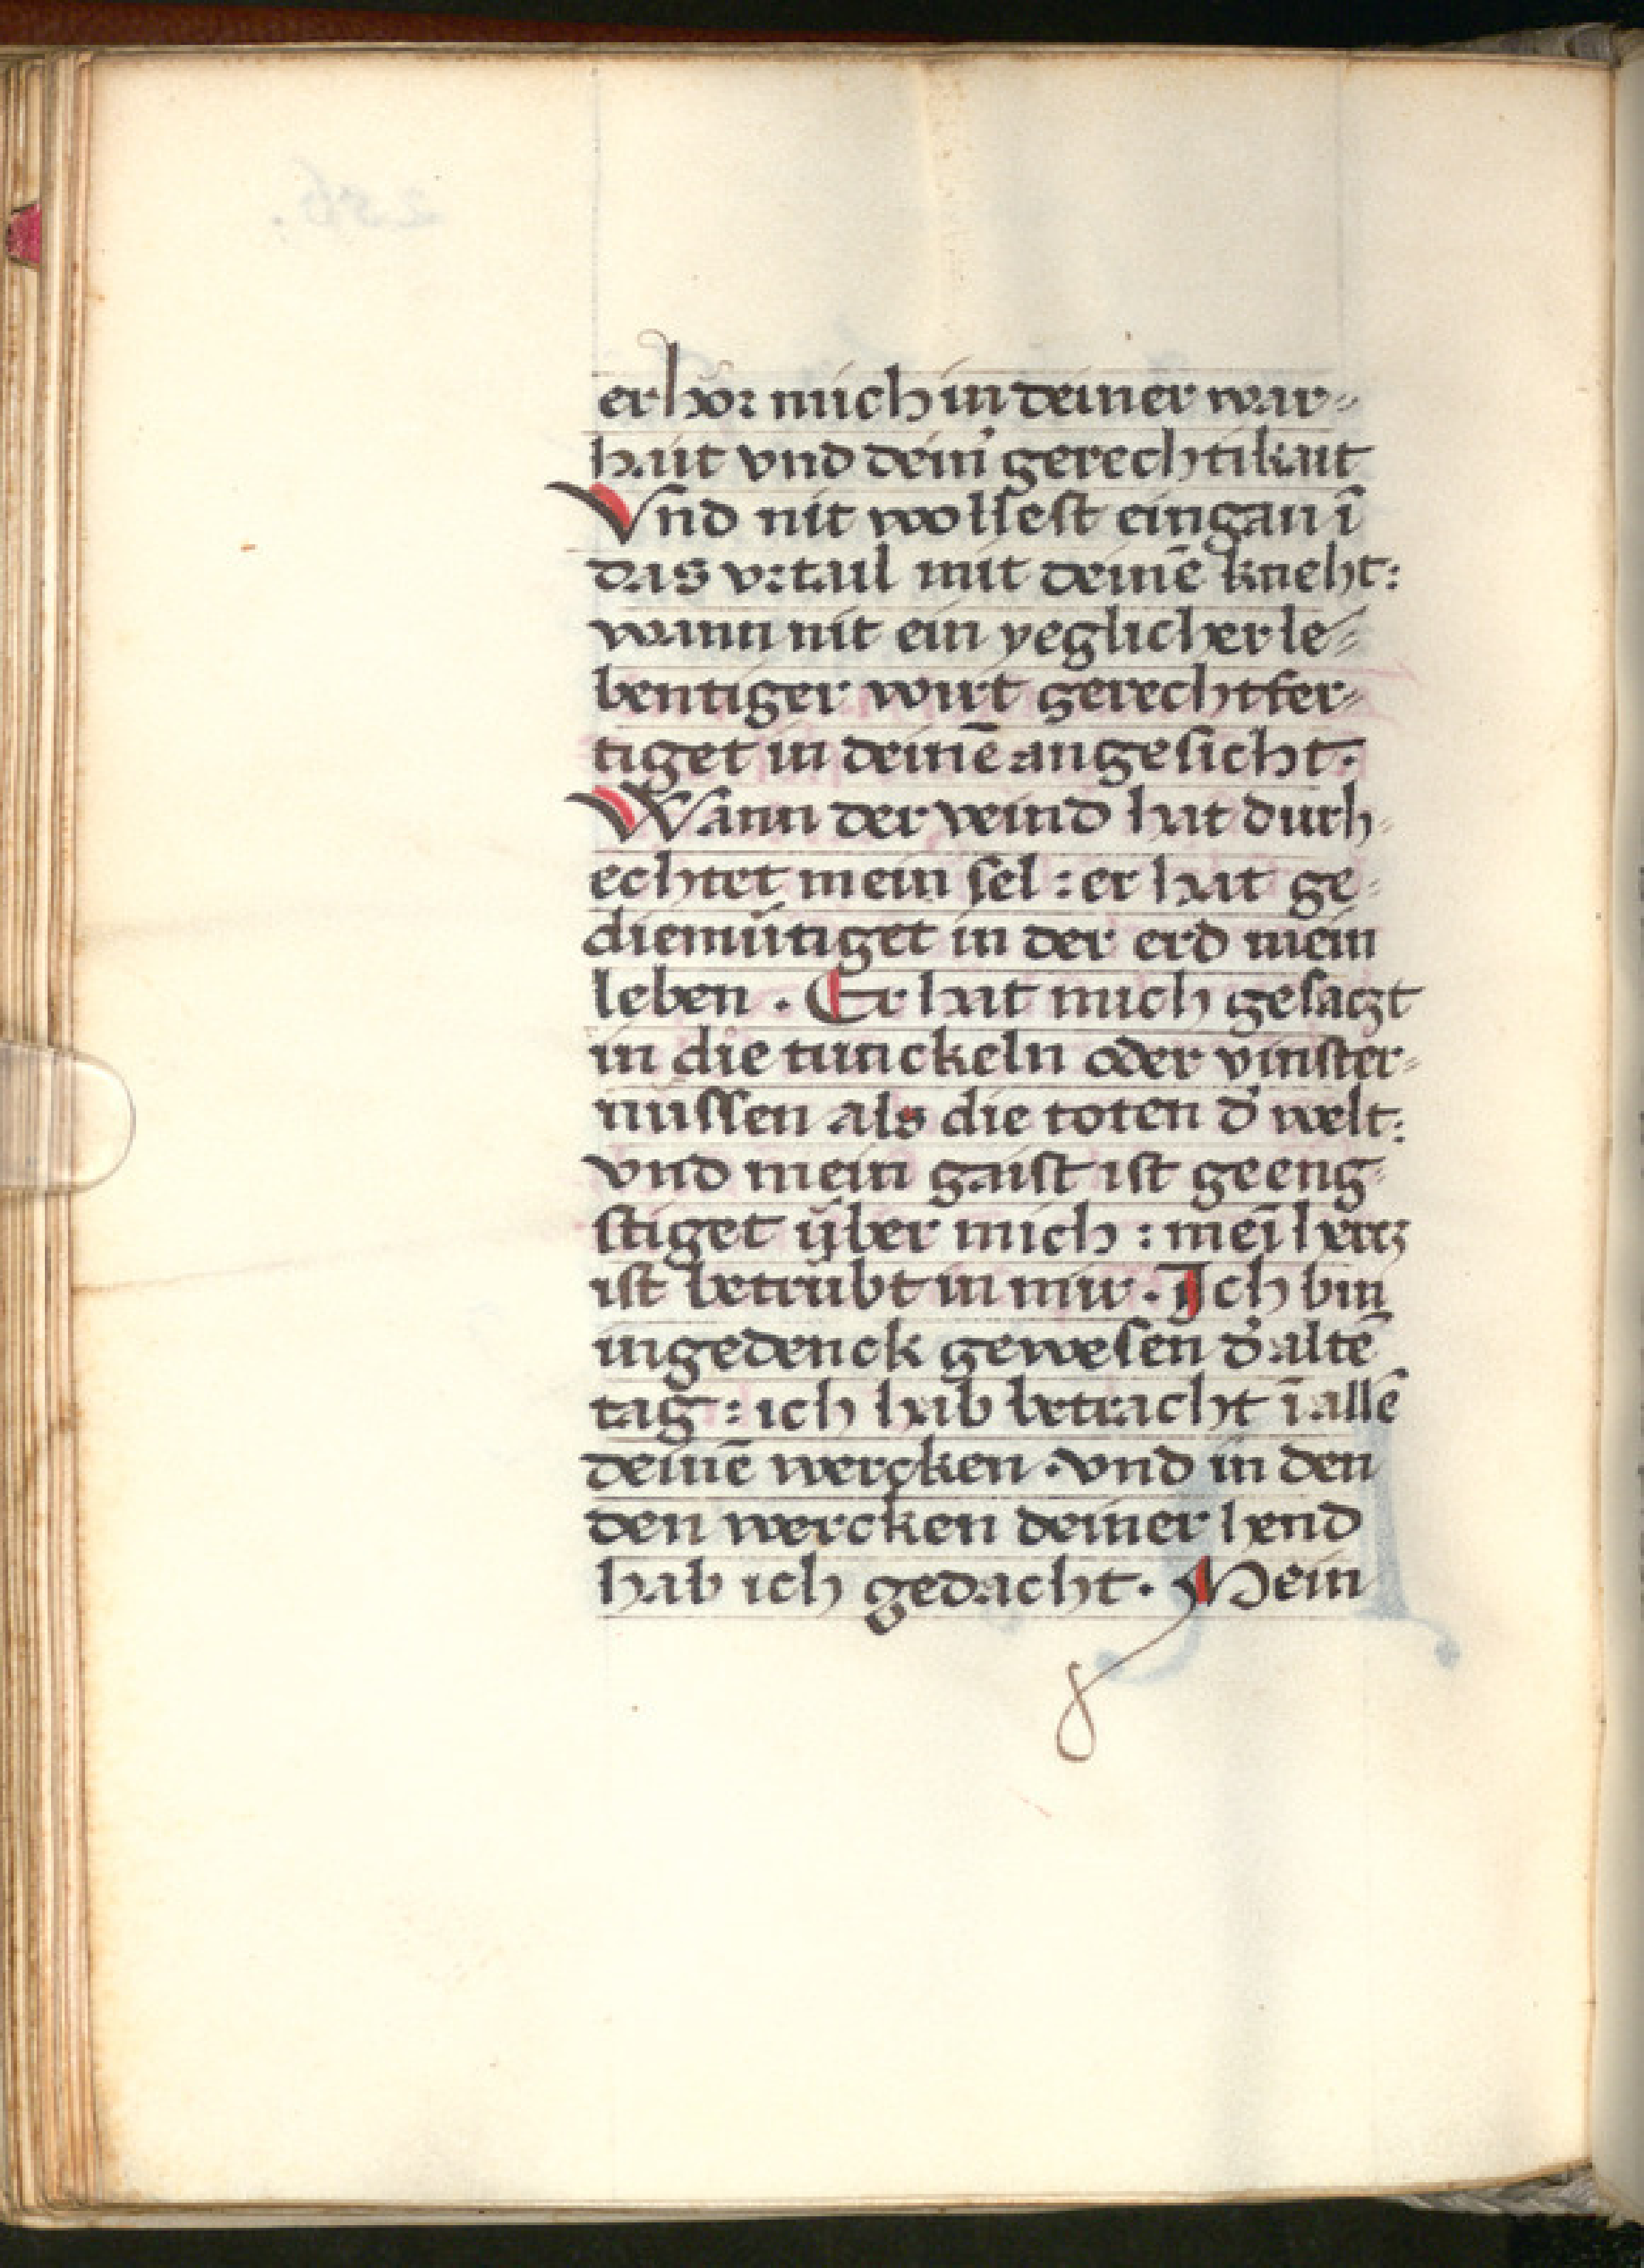 erhör mich in deiner war⸗
hait vnd dein̓ gerechtikait
Vnd nit wollest eingan ī
das vrtail mit deinē kneht:
wann nit ein yeglicher le⸗
bentiger wirt gerechtfer⸗
tiget in deinē angesicht.
Wann der veind hat durh⸗
echtet mein sel : er hat ge⸗
diemütiget in der erd mein
leben . Er hat mich gesaczt
in die tunckeln oder vinster⸗
nussen als die toten d̓ welt:
vnd mein gaist ist geeng⸗
stiget über mich : mei᷑ hertz
ist betrübt in mir . Ich bin
ingedenck gewesen d̓ altē
tag : ich hab betracht ī allē
deinē wercken . vnd in den
den wercken deiner hend
hab ich gedacht . Mein